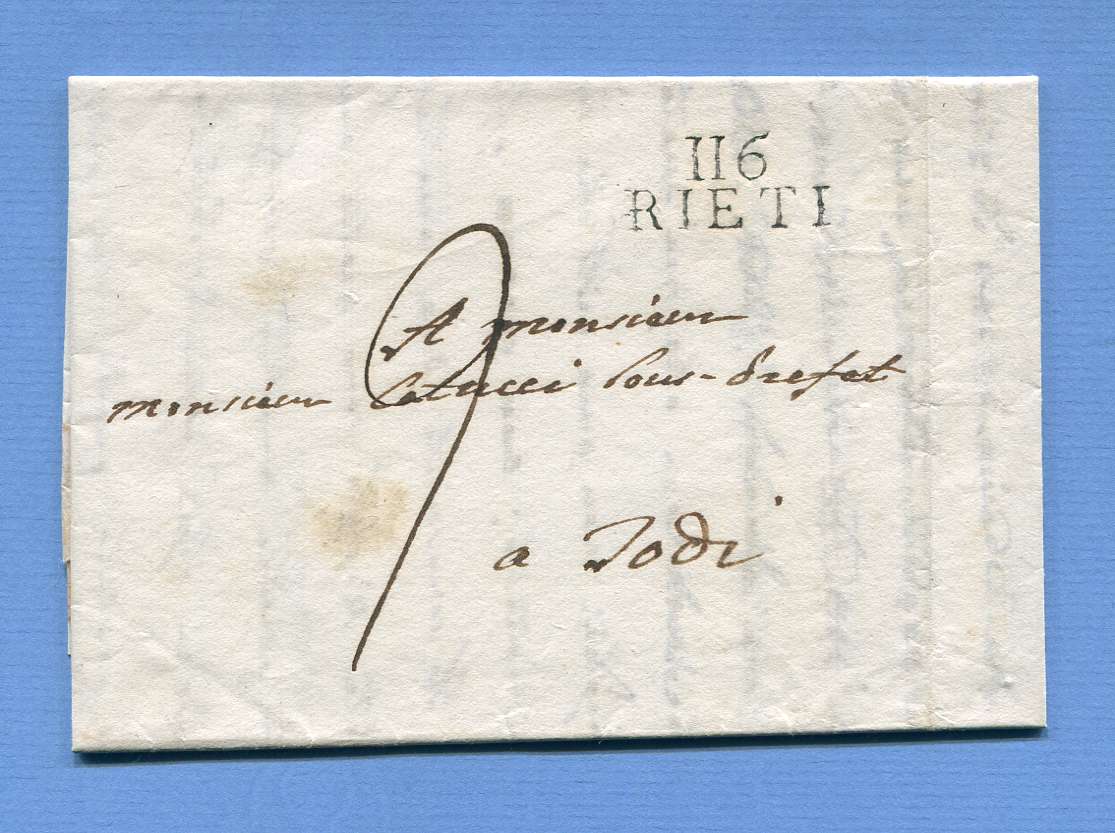 116
RIETI
9
A monsieur
monsieur sous-Prefet
a Todi